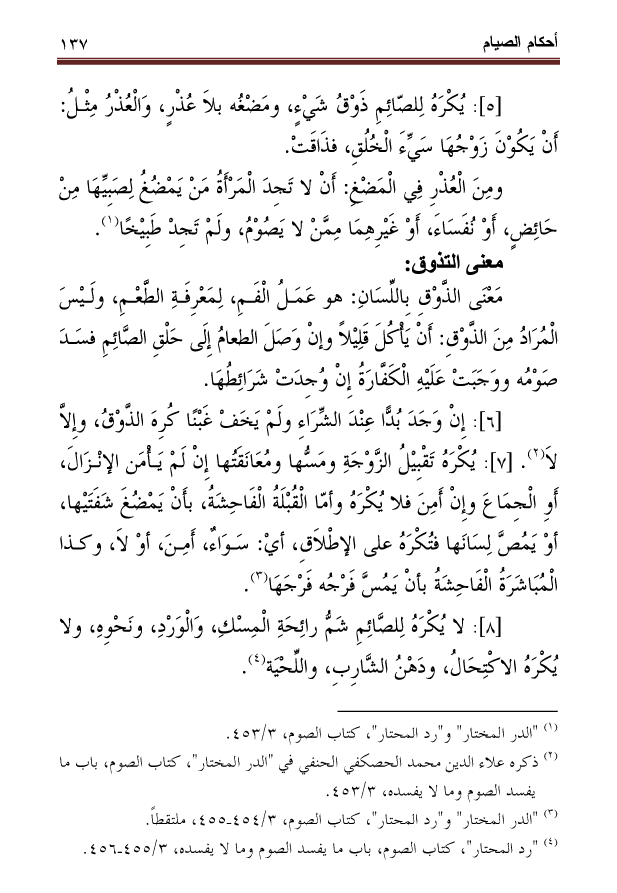 أحكام الصيام ١٣٧
[٥]: يُكْرَهُ لِلصّائِمِ ذَوْقُ شَيْءٍ، ومَضْغُه بلاَ عُذْرٍ، وَالْعُذْرُ مِثْـلُ:
أَنْ يَكُوْنَ زَوْجُهَا سَيِّءَ الْخُلُقِ، فذَاقَتْ.
ومِنَ الْعُذْرِ فِي الْمَضْغِ: أَنْ لا تَجِدَ الْمَرْأَةُ مَنْ يَمْضُغُ لِصَبِيِّهَا مِنْ
حَائِضٍ، أَوْ نُفَسَاءَ، أَوْ غَيْرِهِمَا مِمَّنْ لا يَصُوْمُ، ولَمْ تَجِدْ طَبِيْخًا(١).
معنى التذوق:
مَعْنَى الذَّوْقِ بِاللِّسَانِ: هو عَمَـلُ الْفَـمِ، لِمَعْرِفَـةِ الطَّعْـمِ، ولَـيْسَ
الْمُرَادُ مِنَ الذَّوْقِ: أَنْ يَأْكُلَ قَلِيْلاً وإنْ وَصَلَ الطعامُ إلَى حَلْقِ الصَّائِمِ فسَـدَ
صَوْمُه ووَجَبَتْ عَلَيْهِ الْكَفَّارَةُ إنْ وُجِدَتْ شَرَائِطُهَا.
[٦]: إنْ وَجَدَ بُدًّا عِنْدَ الشِّرَاءِ ولَمْ يَخَفْ غَبْنًا كُرِهَ الذَّوْقُ، وإلاَّ
لاَ(٢). [٧]: يُكْرَهُ تَقْبِيْلُ الزَّوْجَةِ ومَسُّها ومُعَانَقَتُها إنْ لَمْ يَـأْمَنِ الإنْـزَالَ،
أَوِ الْجِمَاعَ وإنْ أَمِنَ فلا يُكْرَهُ وأمّا الْقُبْلَةُ الْفَاحِشَةُ، بأَنْ يَمْضُغَ شَفَتَيْها،
أوْ يَمُصَّ لِسَانَها فتُكْرَهُ على الإطْلاَقِ، أيْ: سَـوَاءٌ، أَمِـنَ، أوْ لاَ، وكـذا
الْمُبَاشَرَةُ الْفَاحِشَةُ بأنْ يَمُسَّ فَرْجُه فَرْجَهَا(٣).
[٨]: لا يُكْرَهُ لِلصَّائِمِ شَمُّ رائِحَةِ الْمِسْكِ، وَالْوَرْدِ، ونَحْوِهِ، ولا
يُكْرَهُ الاكْتِحَالُ، ودَهْنُ الشَّارِبِ، واللِّحْيَةِ(٤).
(١) "الدر المختار" و"رد المحتار"، كتاب الصوم، ٤٥٣/٣.
(٢) ذكره علاء الدين محمد الحصكفي الحنفي في "الدر المختار"، كتاب الصوم، باب ما
يفسد الصوم وما لا يفسده، ٤٥٣/٣.
(٣) "الدر المختار" و"رد المحتار"، كتاب الصوم، ٤٥٤/٣-٤٥٥، ملتقطاً.
(٤) "رد المحتار"، كتاب الصوم، باب ما يفسد الصوم وما لا يفسده، ٤٥٥/٣-٤٥٦.